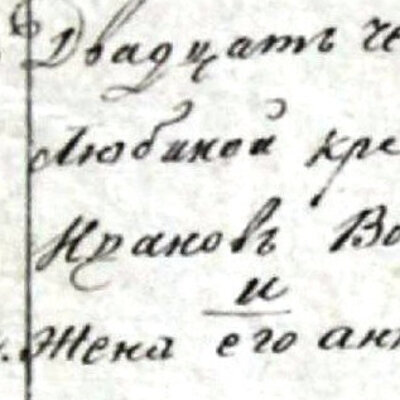 Двадцать че
Любиной кре
Ираковъ Ва
и
Жена его анн